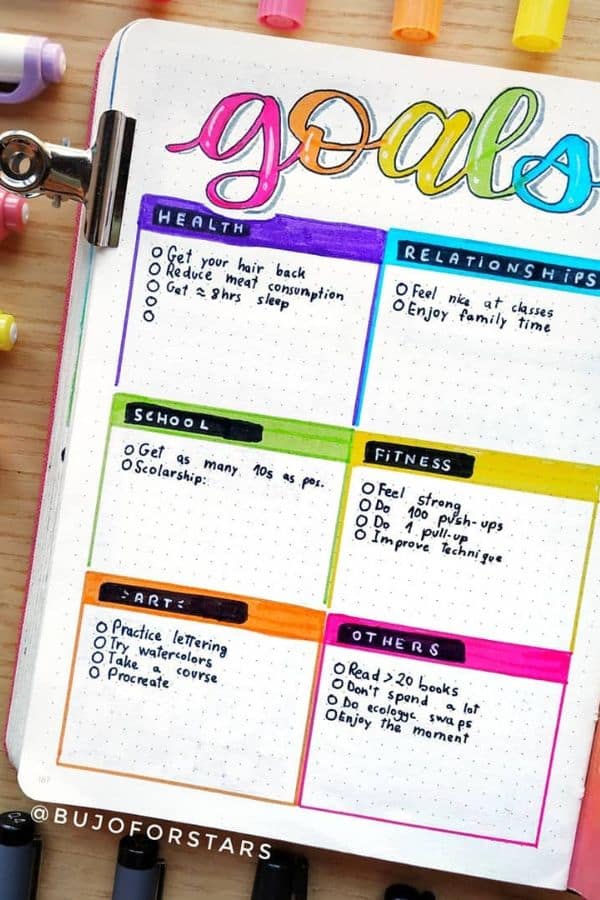 goals
HEALTH
Get your hair back
Reduce meat consumption
Get ≈ 8hrs sleep
RELATIONSHIPS
Feel nice at classes
Enjoy family time
SCHOOL
Get as many 10s as pos.
Scolarship:
FITNESS
Feel strong
Do 100 push-ups
Do 1 pull-up
Improve technique
ART
Practice lettering
Try watercolors
Take a course
Procreate
OTHERS
Read > 20 books
Don't spend a lot
Do ecologyc swaps
Enjoy the moment
187
@BUJOFORSTARS